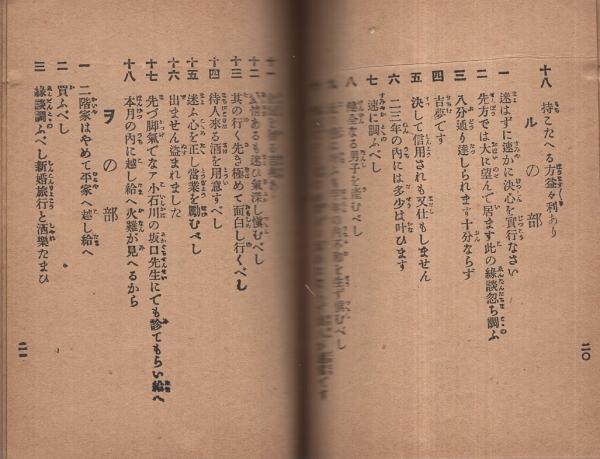 十八 持こたへる方益々利あり
ルの部
一 迷はずに速かに決心を實行なさい
二 先方では大に望んで居ます此の縁談忽ち調ふ
三 八分通り達しられます十分ならず
四 吉夢です
五 決して信用されも又仕もしません
六 二三年の内には多少は叶ひます
七 速に調ふべし
八 健全なる男子を産むべし
十二
あるも迷ひ氣深し愼むべし
十三 其の行く先き極めて面白し行くべし
十四 待人來る酒を用意すべし
十五 迷ふ心を正し營業を勵むべし
十六 出ません盗まれました
十七 先づ脚氣でなァ小石川の坂口先生にでも診てもらい給へ
十八 本月の内に越し給へ火難が見へるから
ヲの部
一 二階家はやめて平家へ越し給へ
二 買ふべし
三 縁談調ふべし新婚旅行と洒樂たまひ
二〇
二一